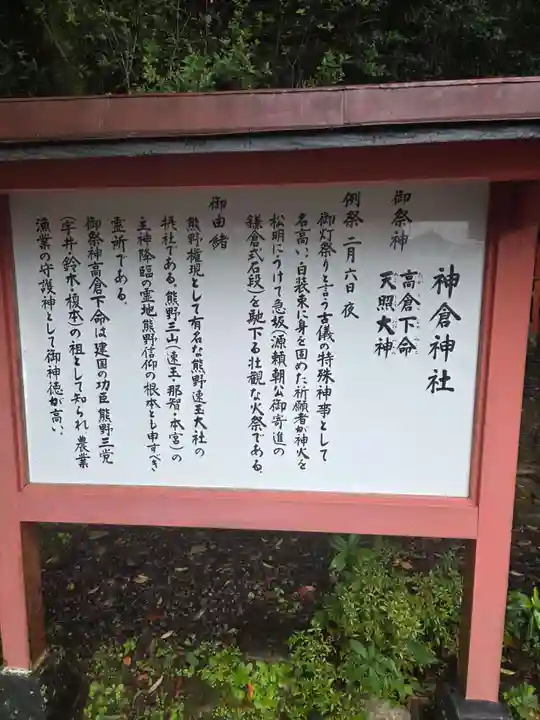 神倉神社
御祭神 高倉下命
天照大神
例祭 二月六日 夜
御灯祭りと言う古儀の特殊神事として
名高い、白装束に身を固めた祈願者が神火を
松明にうけて急坂(源頼朝公御寄進の
鎌倉式石段)を馳下る壮観な火祭である。
御由緒
熊野権現として有名な熊野速玉大社の
摂社である。熊野三山(速玉・那智・本宮)の
主神降臨の霊地、熊野信仰の根本とも申すべき
霊所である。
御祭神高倉下命は建国の功臣、熊野三党
(宇井・鈴木・榎本)の祖として知られ、農業
漁業の守護神として御神徳が高い。